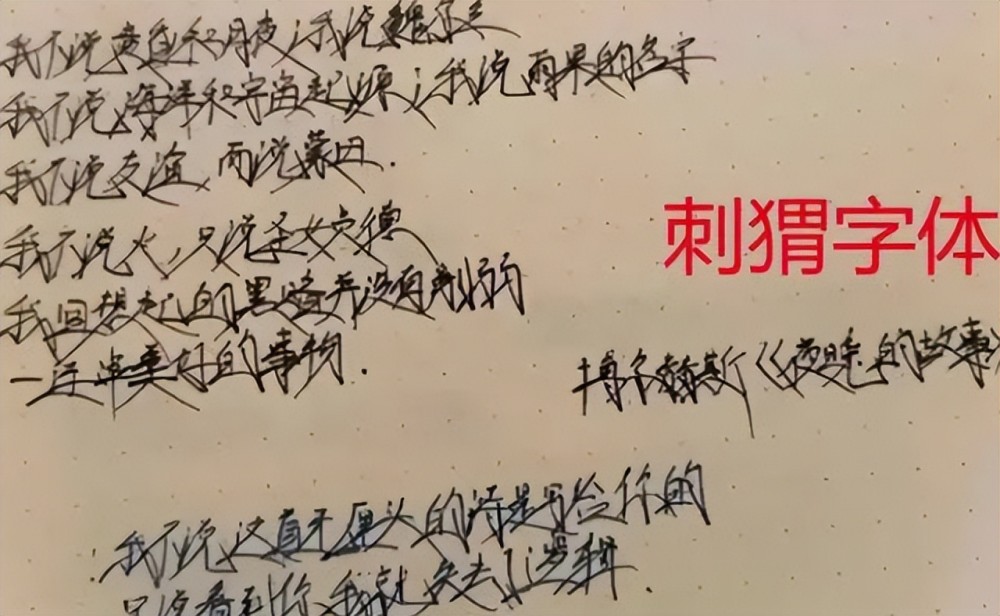 我不说黄昏和月夜；我说魏尔兰
我不说海洋和宇宙起源；我说雨果的名字
我不说友谊，而说蒙田.
我不说火，只说圣女贞德
刺猬字体
我回想起的黑暗并没有削弱
一连串美好的事物.
博尔赫斯《夜晚的故事》
我不说这真无厘头的诗是写给你的
只说看到你,我就失去了逻辑.